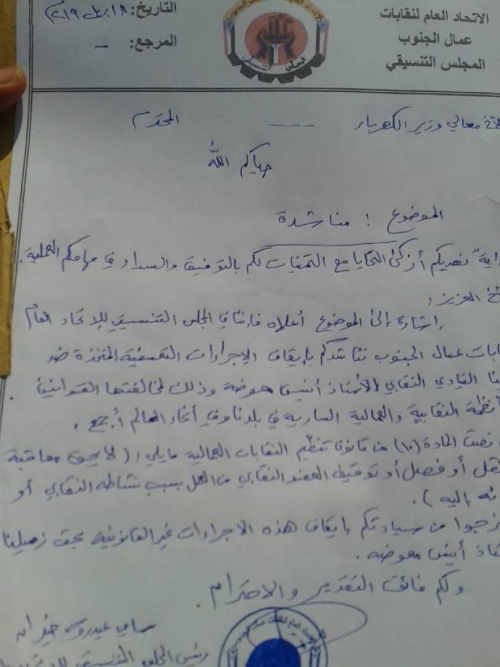 الاتحاد العام لنقابات
عمال الجنوب
المجلس التنسيقي
التاريخ: ١٨ ابريل ٢٠١٩
المرجع: -
معالي وزير الكهرباء ---- المحترم
حياكم الله
الموضوع : مناشدة
نهديكم أزكى التحايا مع التمنيات لكم بالتوفيق والسداد في مهامكم العملية.
العزيز :
إشارة إلى الموضوع أعلاه فإننا في المجلس التنسيقي للاتحاد العام
عمال الجنوب نناشدكم بإيقاف الإجراءات التعسفية المتخذة ضد
القيادي النقابي الأستاذ أنيس معوضة وذلك لمخالفتها القوانين
النقابية والعمالية السارية في بلدنا وفي أنحاء العالم أجمع .
نصت المادة (١٠) من قانون تنظيم النقابات العمالية مايلي : ( لا يجوز معاقبة
أو فصل أو توقيف العضو النقابي من العمل بسبب نشاطه النقابي أو
إليه ) .
من سيادتكم بإيقاف هذه الاجراءات غير القانونية بحق زميلنا
أنيس معوضه .
ولكم فائق التقدير والاحترام .
سامي عيدروس خيران
رئيس المجلس التنسيقي